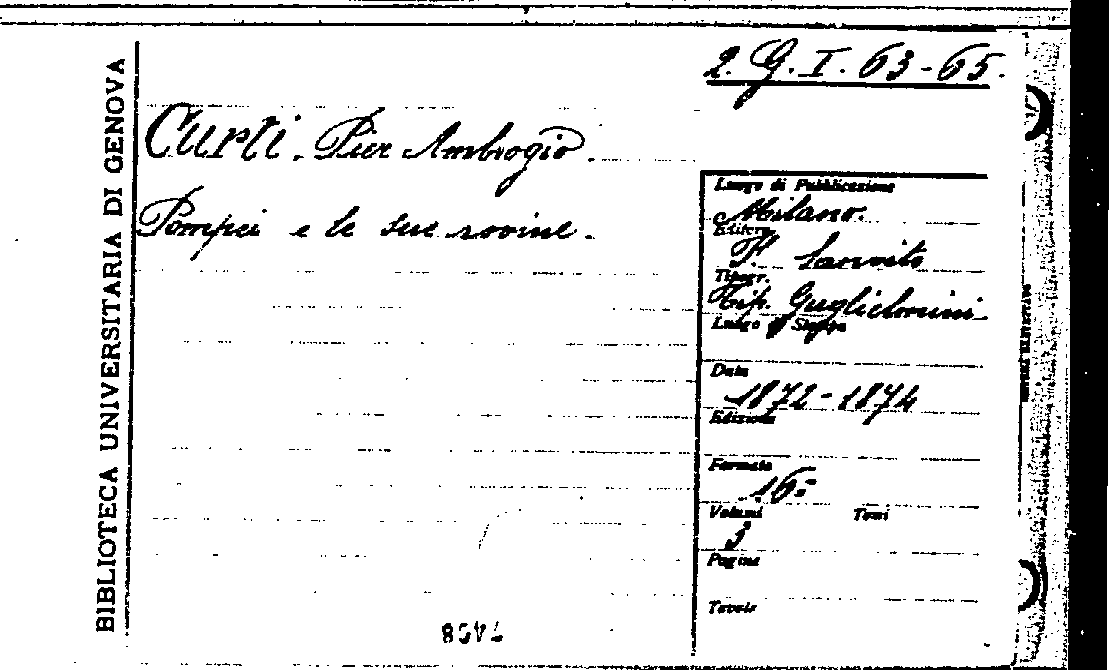 BIBLIOTECA UNIVERSITARIA DI GENOVA
2. G. I. 63-65.
Curti. Pier Ambrogio.
Pompei e le sue rovine.
Luogo di Pubblicazione
Milano.
Editore
F. Sanvito
Tipogr.
Tip. Guglielmini
Luogo di Stampa
Data
1872-1874
Edizione
Formato
16º
Volumi Tomi
3
Pagine
Tavole